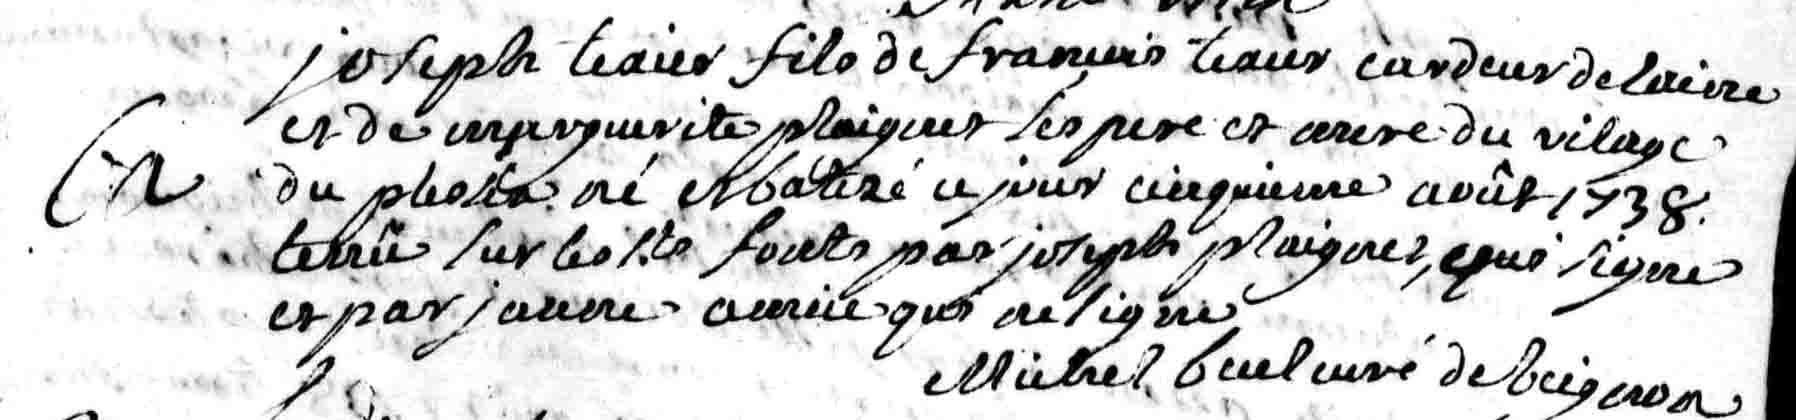 joseph texier fils de francois texier cardeur de laine
et de marguerite plaignet ses pere et mere du vilage
du né et batizé ce jour cinquieme août 1738.
tenû sur les sts fonts par joseph plaignet, qui signe
et par jeanne qui ne signe
Michel curé de